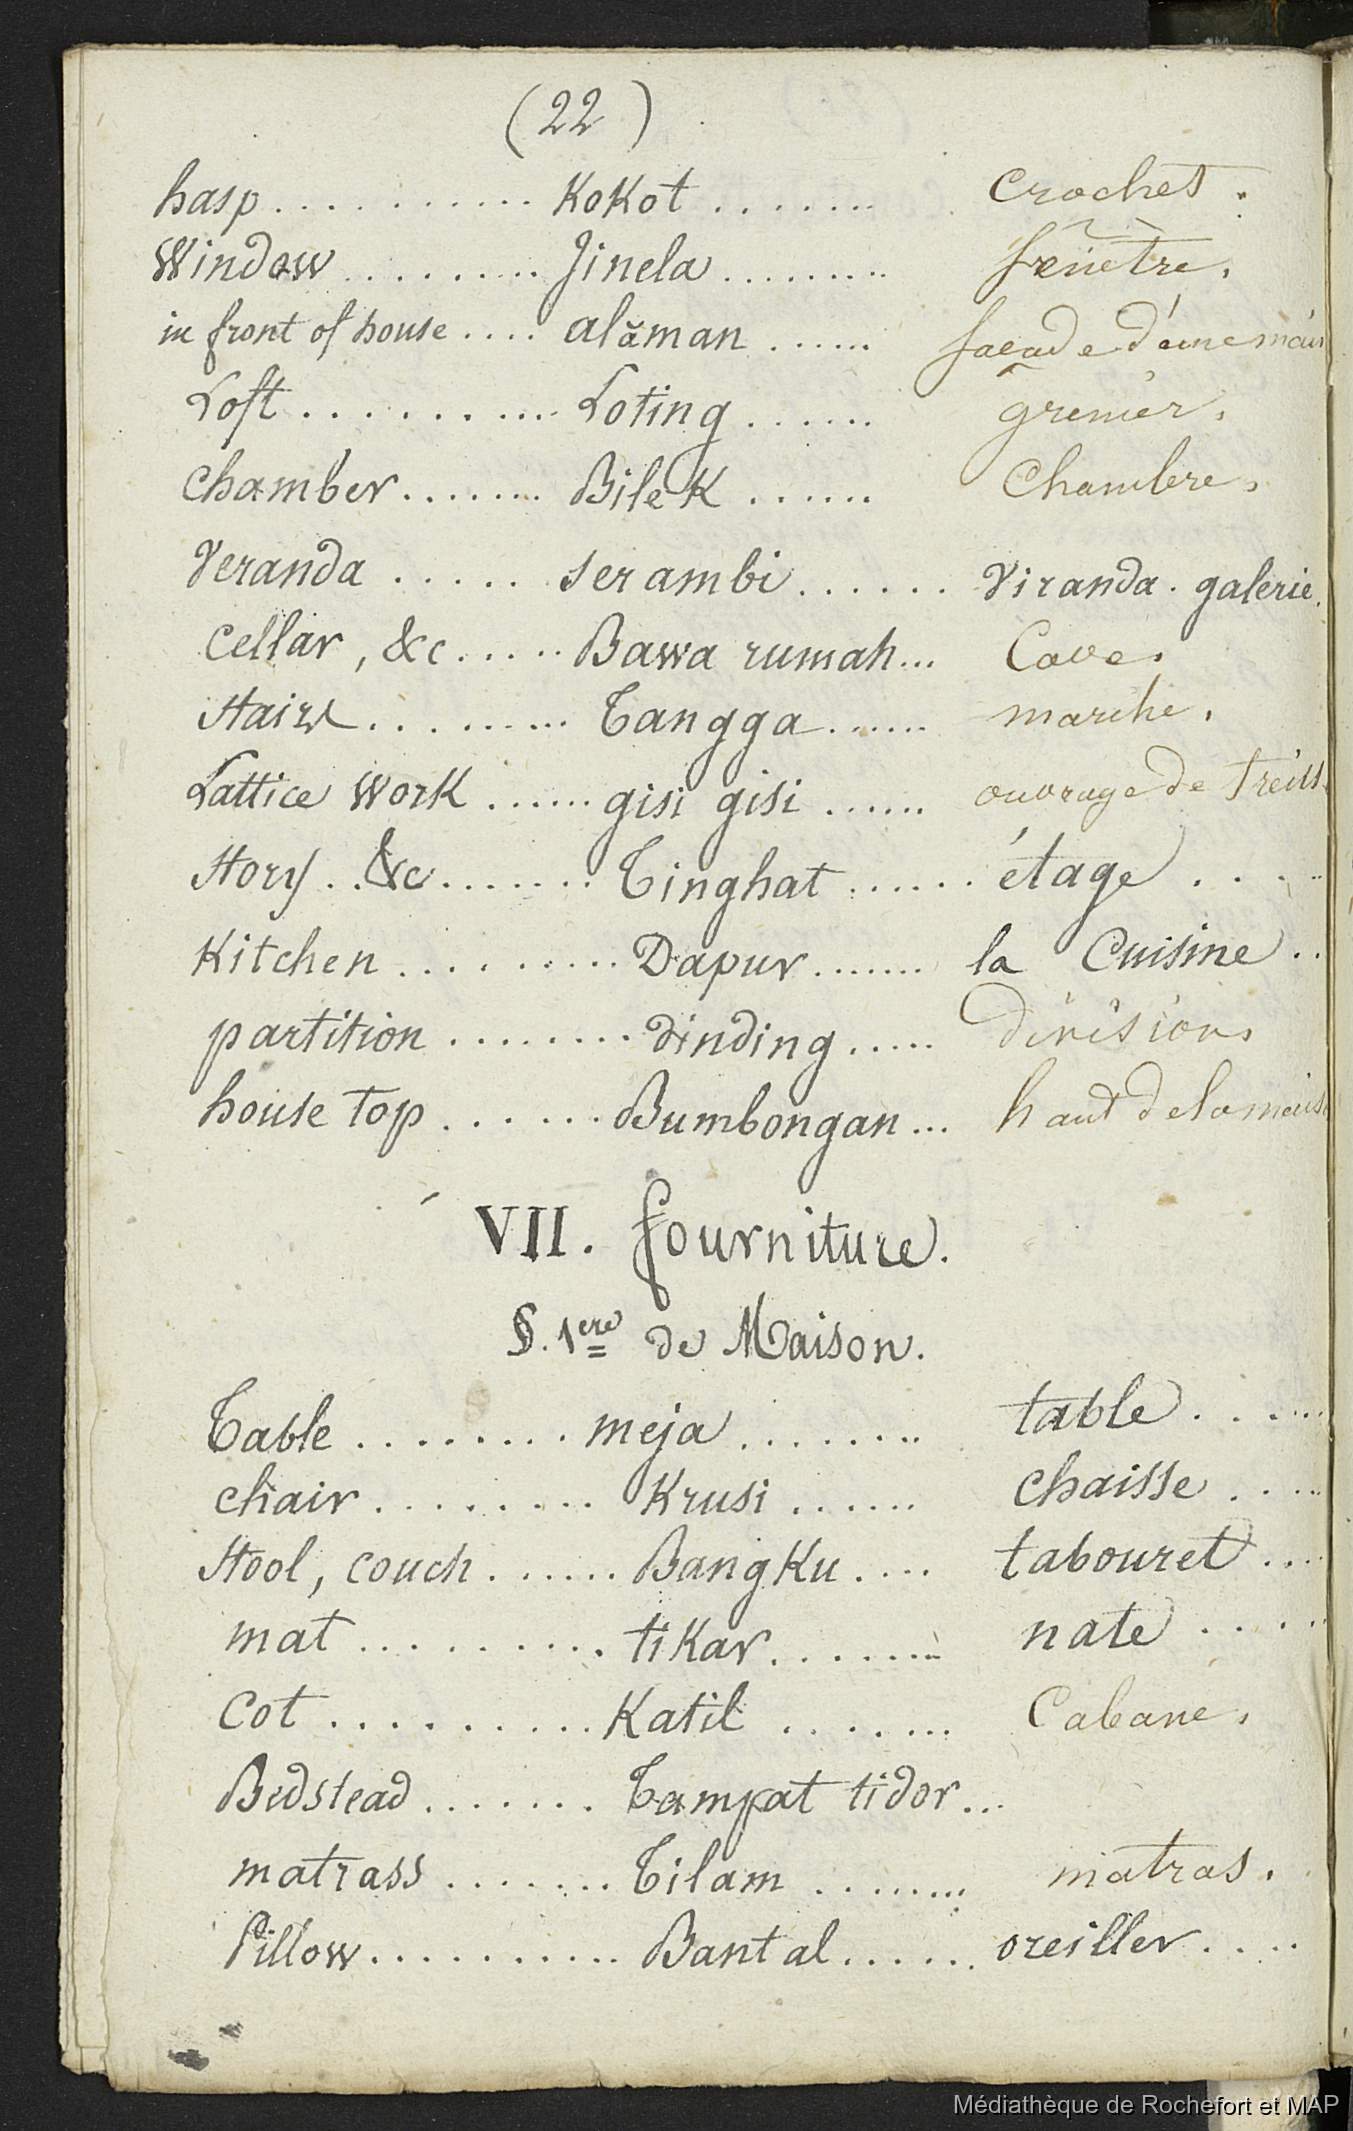 (22)
hasp........... Kokot ....... crochet.
Window ......... Jinela ......... fenêtre.
in front of house .... alăman ...... façade d'une
Loft .......... Loting ...... grenier.
chamber ....... Bilek ...... Chambre.
Veranda ..... serambi ...... Viranda. galerie.
Cellar, &c ..... Bawa rumah... Cave.
Stairs ......... Tangga ...... marche.
Lattice Work ...... gisi gisi ...... ouvrage de
Story .. &c ....... Tinghat ...... étage ....
Kitchen ......... Dapur ....... la Cuisine ..
partition ........ dinding ..... division.
house top ...... Bumbongan ... haut de la
VII. fourniture.
§. 1ere de Maison.
Table ........ meja ........ table .....
chair ........ Krusi ...... chaisse ....
Stool, couch ...... Bangku .... tabouret ....
mat ......... tikar ........ nate ....
Cot .......... Katil ....... Cabane.
Bedstead ....... Tampat tidor...
matrass ....... Tilam ........ matras.
Pillow .......... Bantal ...... oreiller ....
Médiathèque de Rochefort et MAP